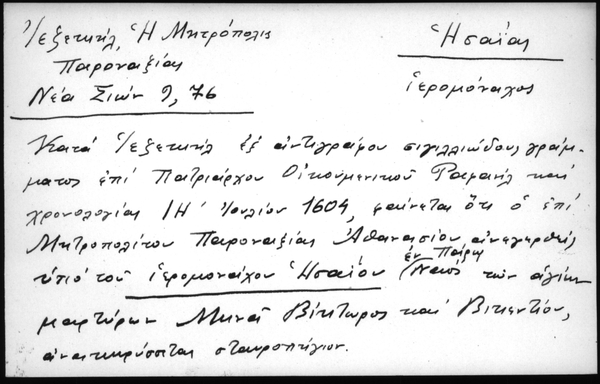 Ἰεζεκιήλ, Ἡ Μητρόπολις
Παροναξίας
Νέα Σιών 9, 76
Ἡσαΐας
ἱερομόναχος
Κατά Ἰεζεκιήλ ἐξ ἀντιγράφου σιγιλλιώδους γράμ-
ματος ἐπί Πατριάρχου Οἰκουμενικοῦ Ραφαήλ καί
χρονολογίας ΙΗ΄ Ἰουλίου 1604, φαίνεται ὅτι ὁ ἐπί
Μητροπολίτου Παροναξίας Ἀθανασίου ἀνεγερθείς
ὑπό τοῦ ἱερομονάχου Ἡσαΐου (ἐν Πάρῳ) Ναός τῶν ἁγίων
μαρτύρων Μηνᾶ Βίκτωρος καί Βικεντίου,
ἀνακηρύσσεται σταυροπήγιον.